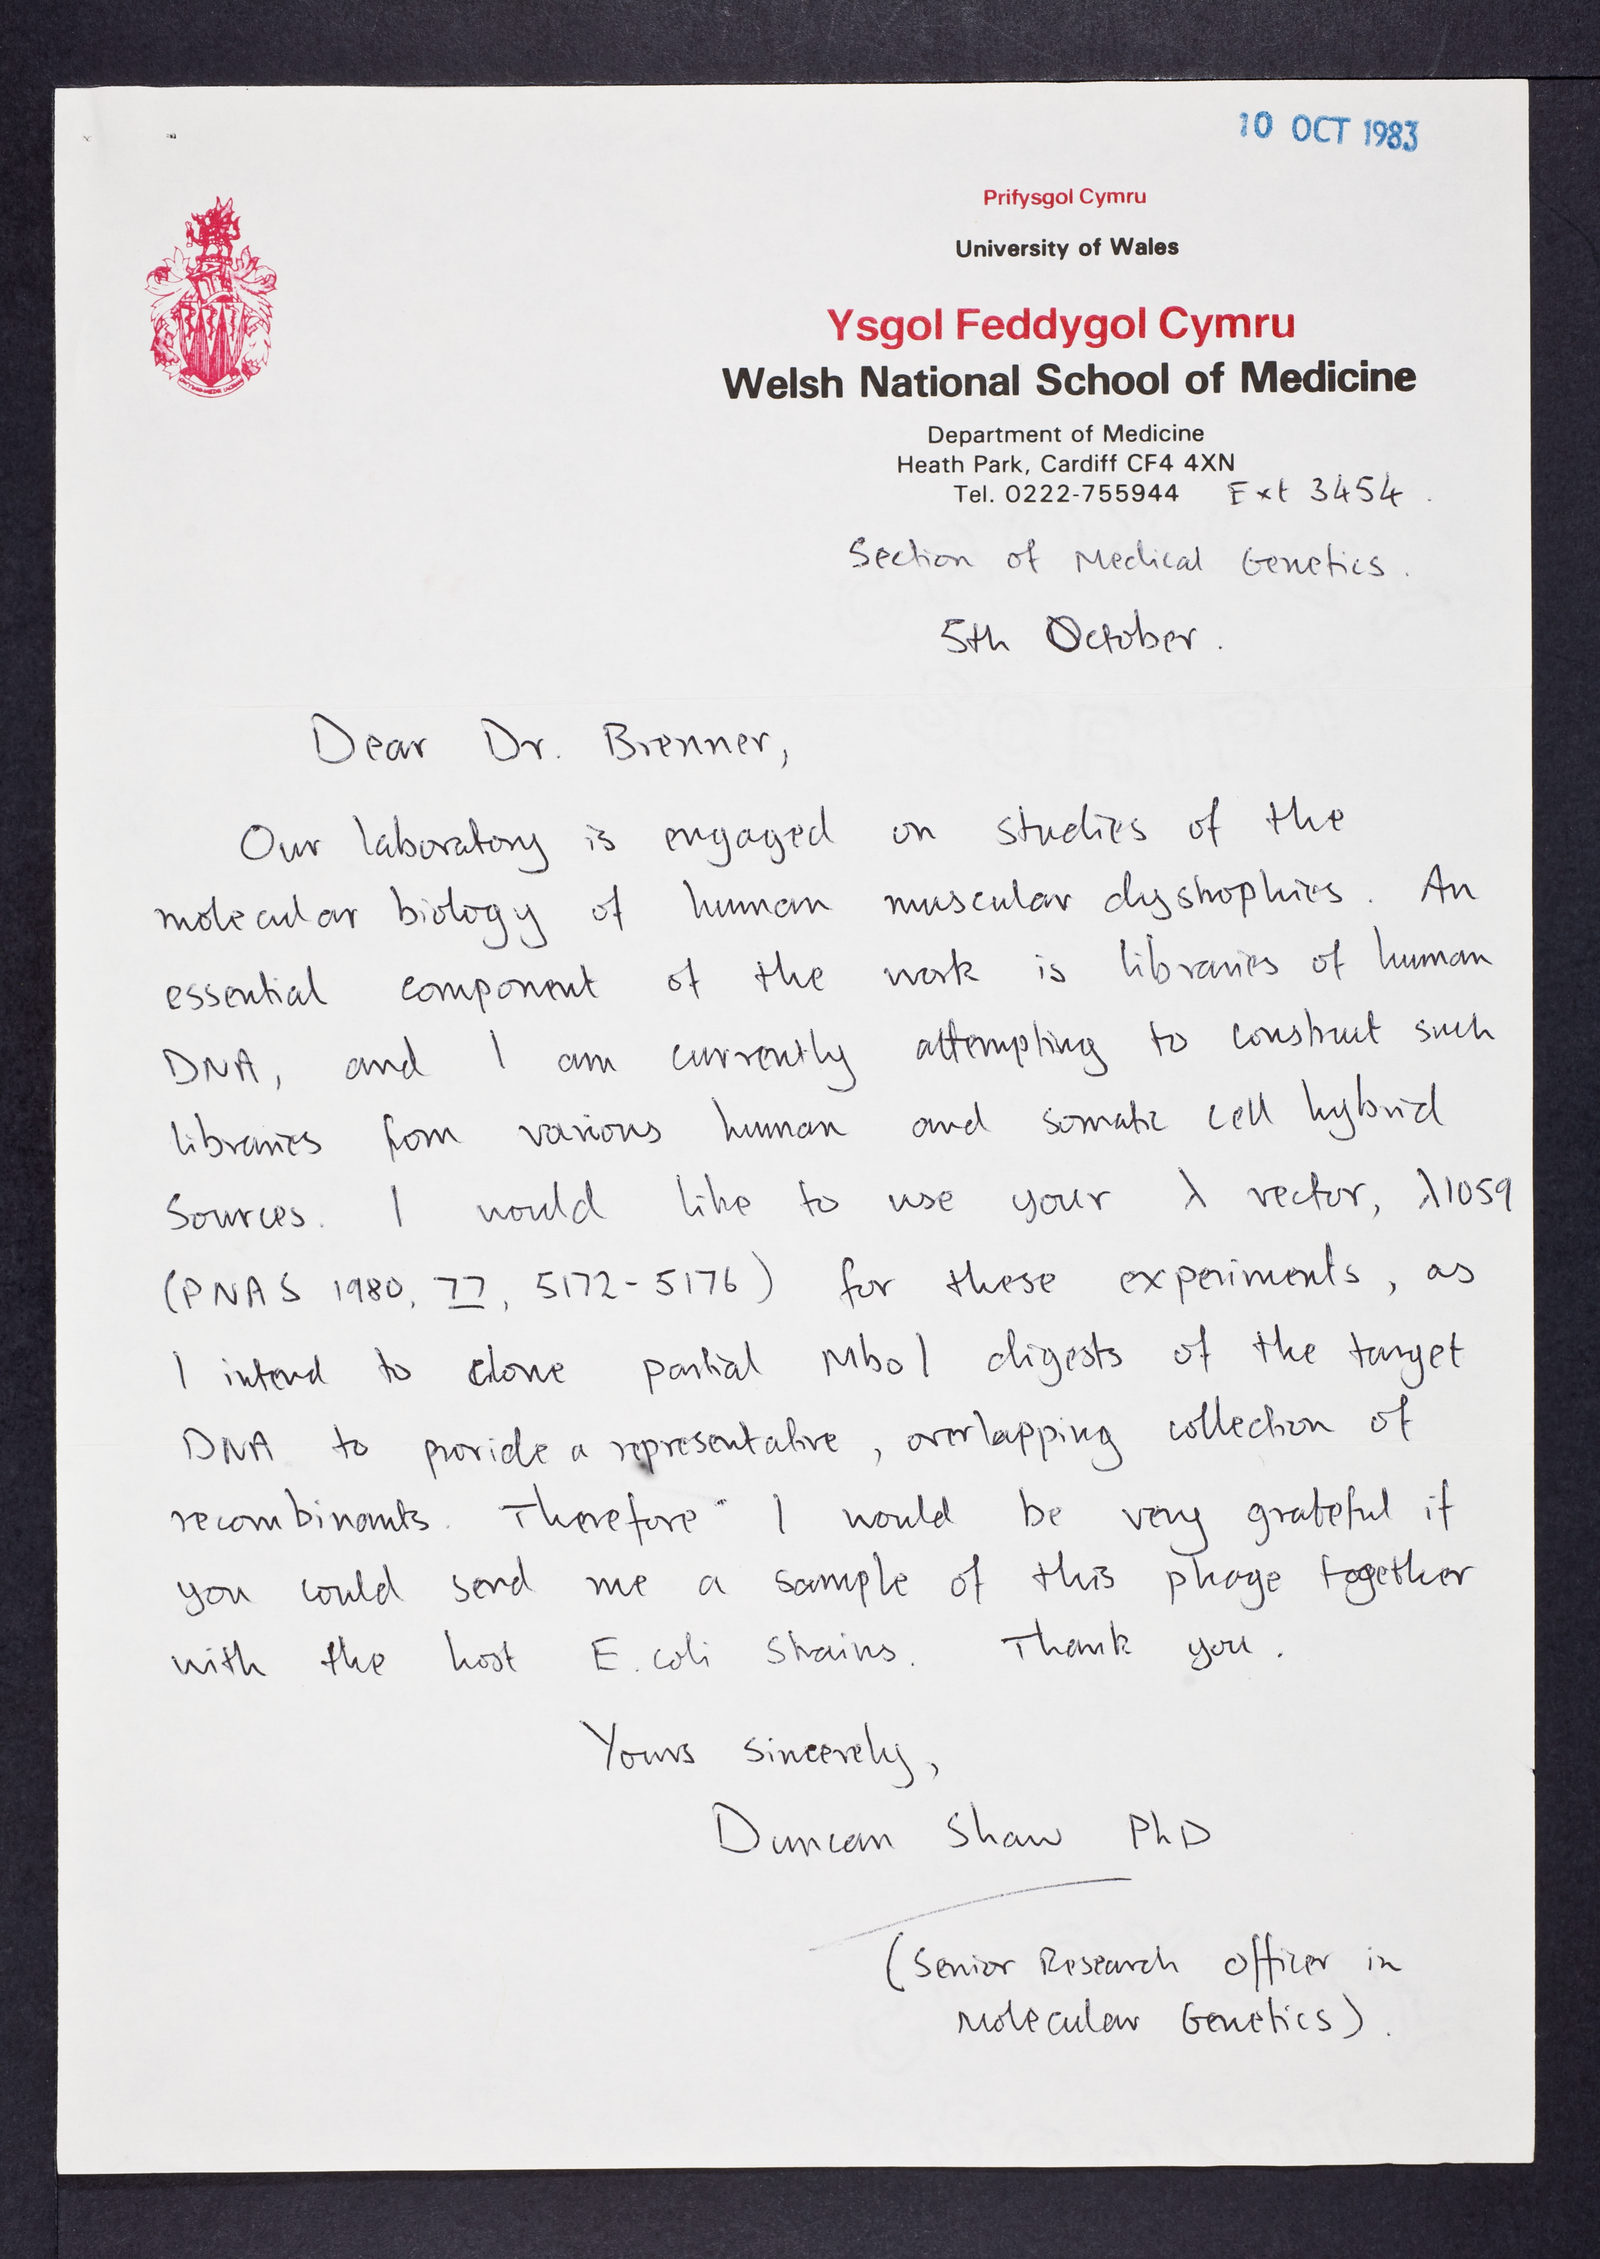 10 OCT 1983
Prifysgol Cymru
University of Wales
Ysgol Feddygol Cymru
Welsh National School of Medicine
Department of Medicine
Heath Park, Cardiff CF4 4XN
Tel. 0222-755944 Ext 3454.
Section of Medical Genetics.
5th October.
Dear Dr. Brenner,
Our laboratory is engaged on studies of the
molecular biology of human muscular dystrophies. An
essential component of the work is libraries of human
DNA, and I am currently attempting to construct such
libraries from various human and somatic cell hybrid
sources. I would like to use your λ vector, λ1059
(PNAS 1980, 77, 5172-5176) for these experiments, as
I intend to clone partial Mbo I digests of the target
DNA to provide a representative, overlapping collection of
recombinants. Therefore I would be very grateful if
you could send me a sample of this phage together
with the host E. coli strains. Thank you.
Yours sincerely,
Duncan Shaw PhD
(Senior Research Officer in
Molecular Genetics).